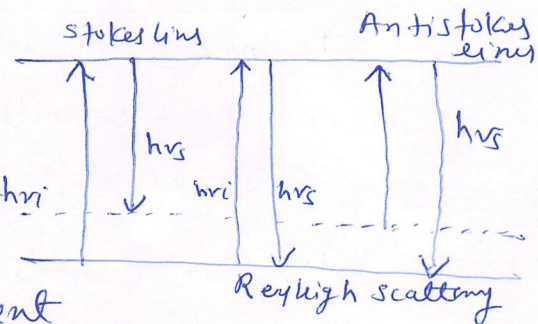 Stokes lins
Antistokes
lines
hνs
hνs
hνi
hνi
hνs
Reyleigh scattering
ent